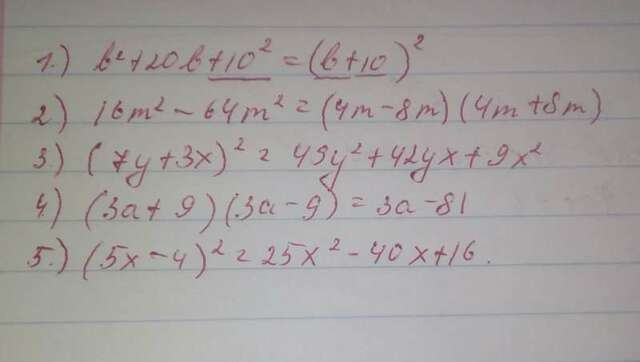 1.) b²+20b+10² = (b+10)²
2) 16m² - 64m² = (4m-8m)(4m+8m)
3) (7y+3x)² = 49y²+42yx+9x²
4) (3a+9)(3a-9) = 3a-81
5.) (5x-4)² = 25x²-40x+16.